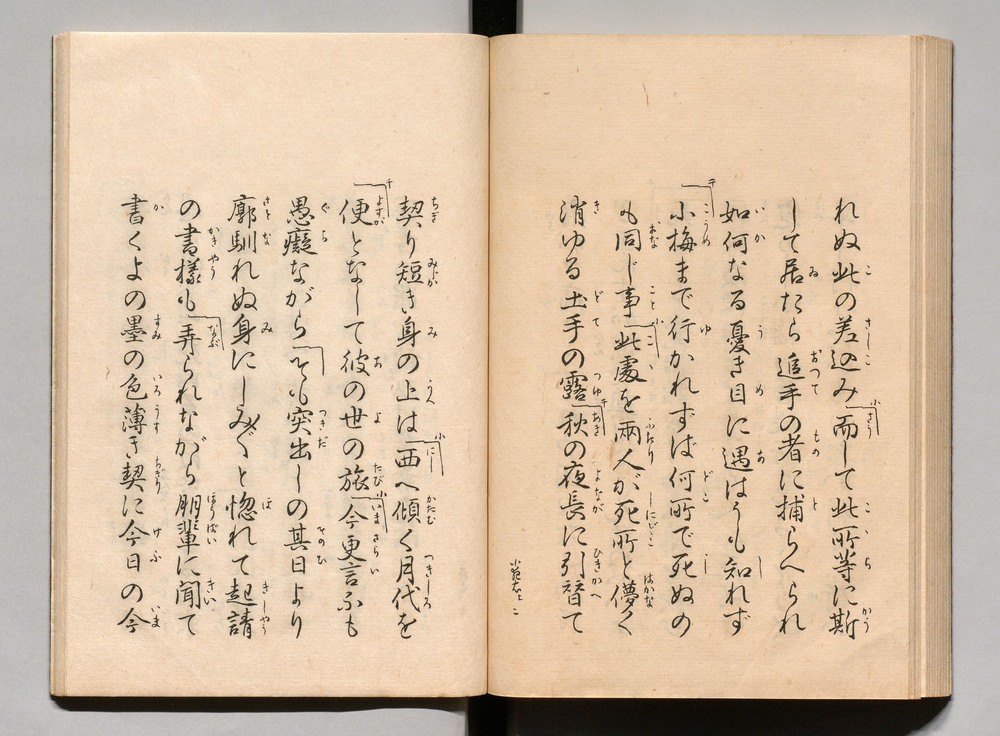 れぬ此の差込み「而して此所等に斯
して居たら追手の者に捕らへられ
如何なる憂き目に遇はうも知れず
小梅まで行かれずば何所で死ぬの
も同じ事「此處を兩人が死所と儚く
消ゆる土手の露「秋の夜長に引替て
契り短き身の上は「西へ傾く月代を
便となして彼の世の旅「今更言ふも
愚癡ながら「そも突出しの其日より
廓馴れぬ身にしみ〴〵と惚れて起請
の書樣も「弄られながら朋輩に聞て
書くよの墨の色薄き契に今日の今